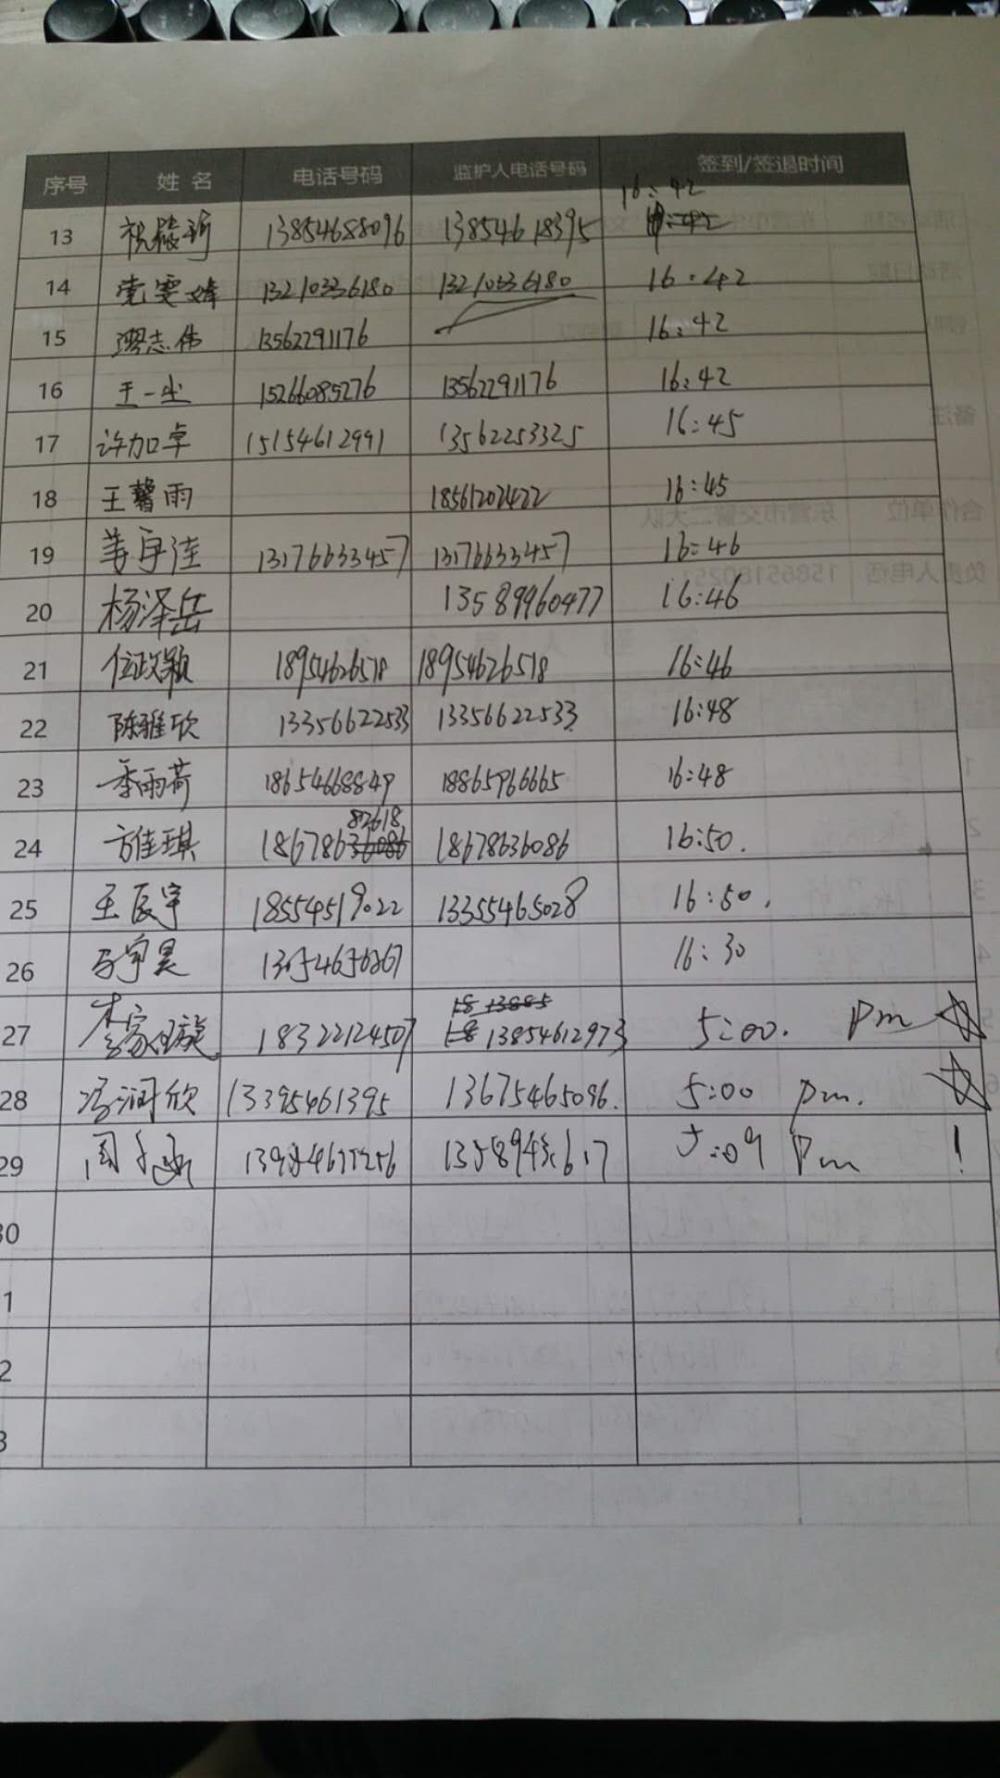 序号 姓名 电话号码 监护人电话号码 签到/签退时间
13 祝 13854688096 13854618395 16:42
14 党雯婕 13210336180 13210336180 16:42
15 廖志伟 13562291176 16:42
16 王一尘 15266085276 13562291176 16:42
17 许加卓 15154612991 13562253325 16:45
18 王馨雨 18561202422 16:45
19 姜宇 13176633457 13176633457 16:46
20 杨泽岳 13589960477 16:46
21 任政颖 18954626518 18954626518 16:46
22 陈雅欣 13356622533 13356622533 16:48
23 季雨荷 18654668849 18865966665 16:48
82618
24 方佳琪 18678636086 18678636086 16:50.
25 王辰宇 18554519022 13355465028 16:50.
26 宇昊 16:30
18 13885
27 李家 18322124507 18 13854612973 5:00. Pm
28 冯润欣 13395461395 13675465096. 5:00 pm.
29 周 5:09 Pm !
30
1
2
3